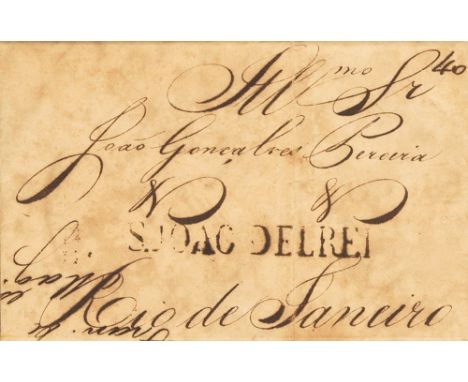 Ill.mo Sr. 40
João Gonçalves Pereira
& &
S.JOAO DELREI
Rio de Janeiro